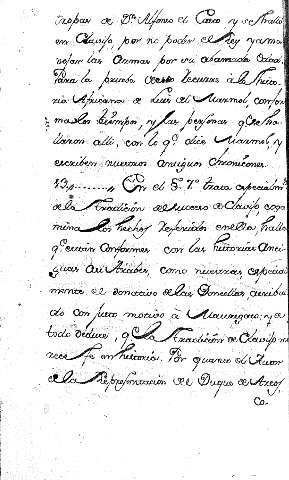 tropas de Dn. Alfonso el Casto y se halló
en Clavijo, por no poder el Rey yá ma-
nejar las Armas por su abanzada edad.
Para la prueba de esto recurre à la Histo-
ria Africana de Luis del Marmol, confor-
ma los tiempos, y las personas que se ha-
llaron alli, con lo qe. dice Marmol, y
escriben nuestros antiguos Chronicones.
13,, En el §. 7º trata especialmte.
de la Tradicion del suceso de Clavijo, exa-
mina los hechos referidos en ella, halla
qe. están conformes con las historias anti-
guas asi Arabes, como nuestras, especial-
mente el donativo de las Doncellas atribui-
do con justo motivo à Mauregato; y de
todo deduce, qe. la Tradicion de Clavijo me-
rece fe en historia. Por quanto el Autor
de la Representacion del Duque de Arcos,
Co-